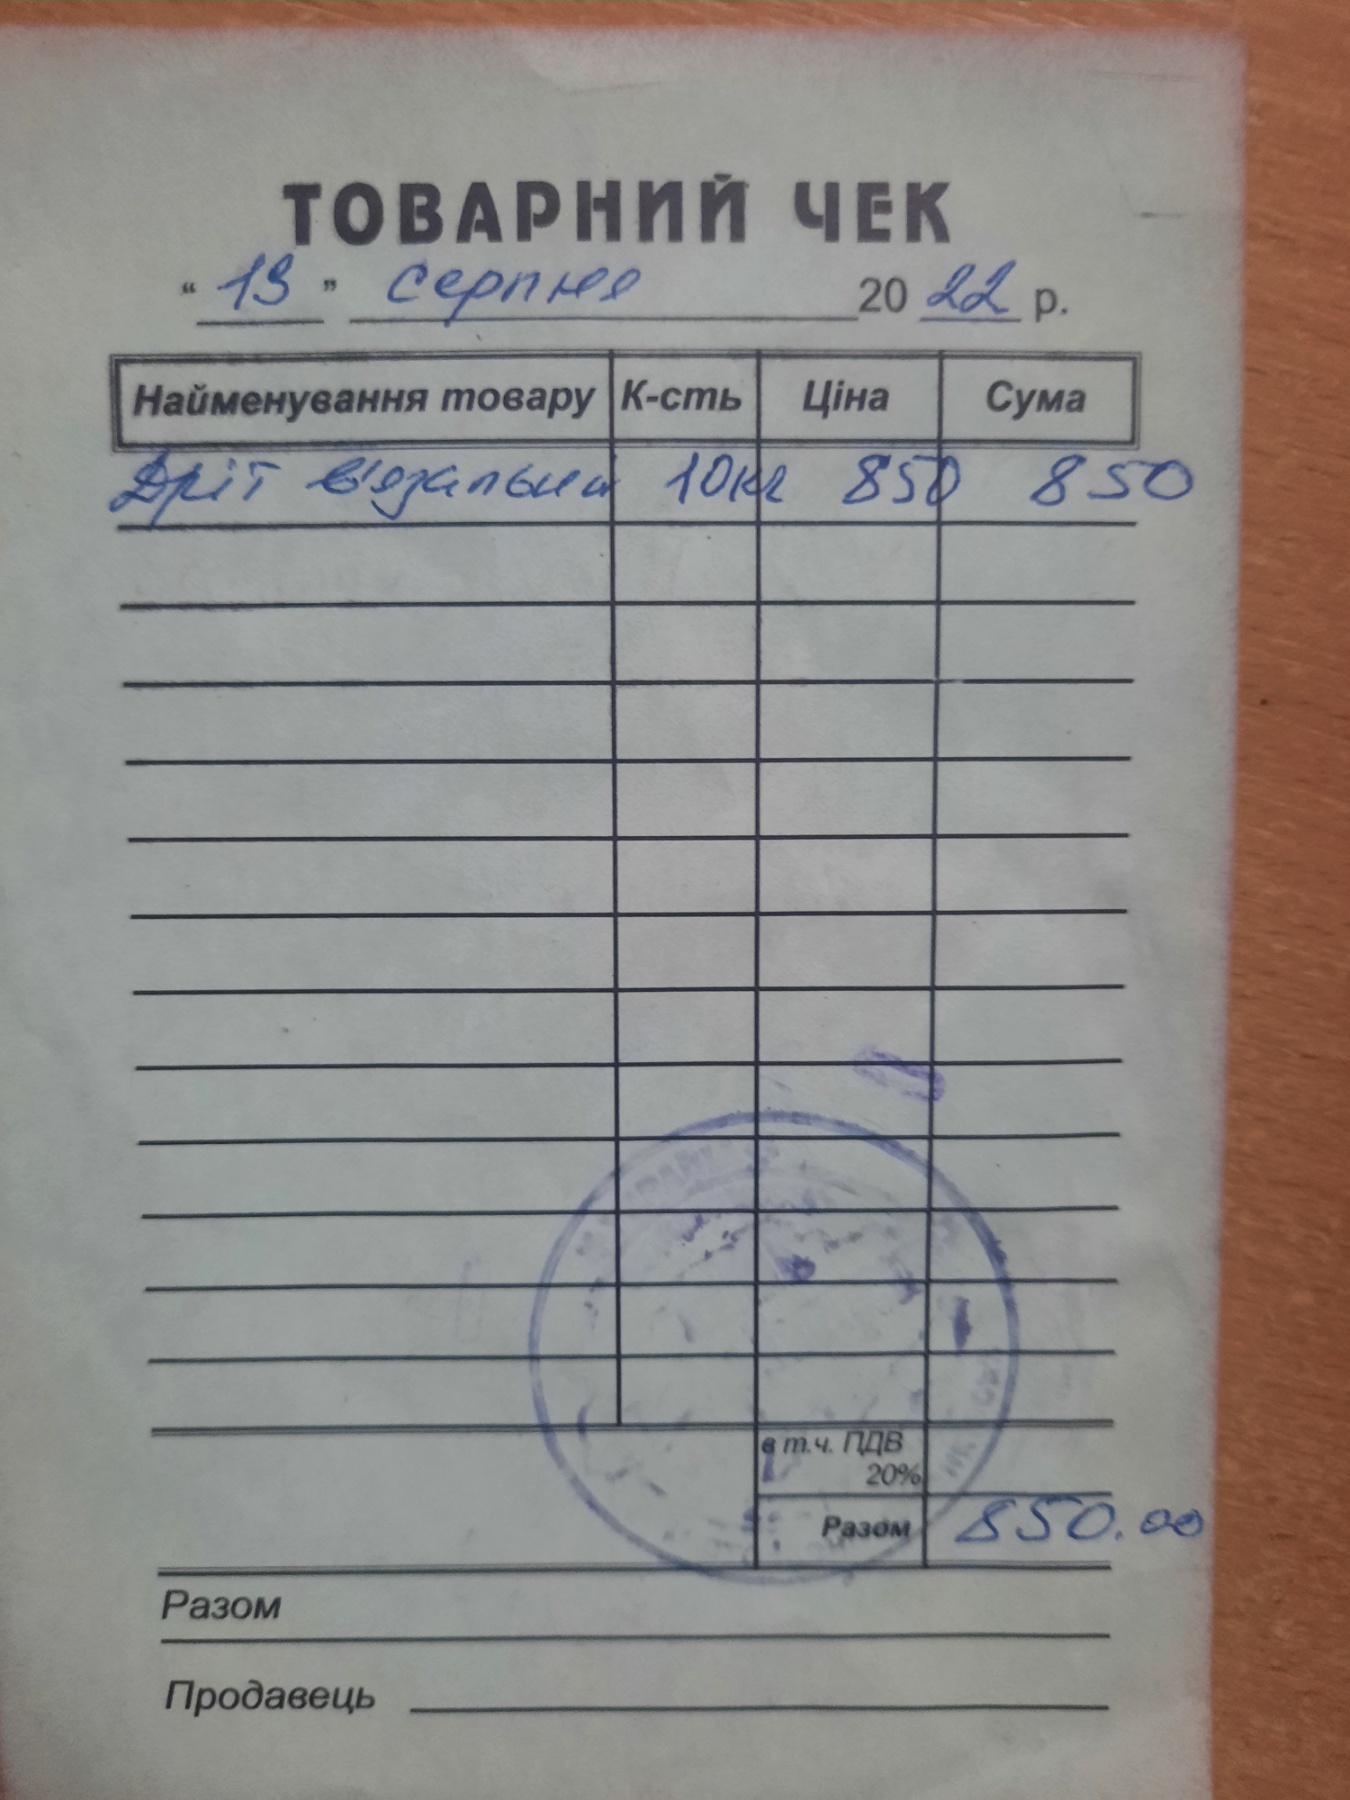 ТОВАРНИЙ ЧЕК
“ 19 ” серпня 2022 р.
Найменування товару К-сть Ціна Сума
Дріт в'язальни 10кг 850 850
в т.ч. ПДВ
20%
Разом 850.00
Разом
Продавець